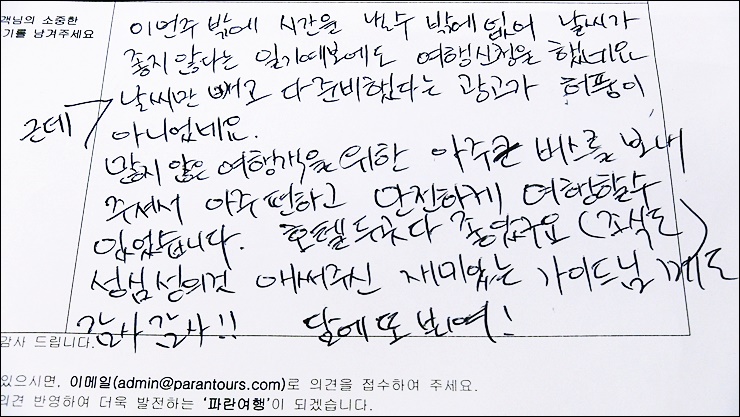 객님의 소중한
기를 남겨주세요
이번주 밖에 시간을 낼수 밖에 없어 날씨가
좋지 않다는 일기예보에도 여행신청을 했네요.
근데 날씨만 빼고 다 준비했다는 광고가 허풍이
아니었네요.
많지 않은 여행객을 위한 아주큰 버스를 보내
주셔서 아주 편하고 안전하게 여행할수
있었습니다. 호텔 두곳다 좋았구요 (조식도)
성심성의껏 애써주신 재미있는 가이드님께도
감사 감사!! 담에 또 뵈여!
감사 드립니다.
있으시면, 이메일(admin@parantours.com)로 의견을 접수하여 주세요.
의견 반영하여 더욱 발전하는 '파란여행'이 되겠습니다.